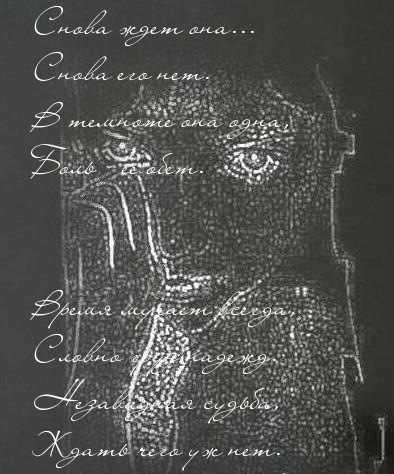 Снова ждет она...
Снова его нет.
В темноте она одна,
Боль - её обет.
Время мучает всегда,
Словно груз надежд.
Незавидная судьба,
Ждать чего уж нет.